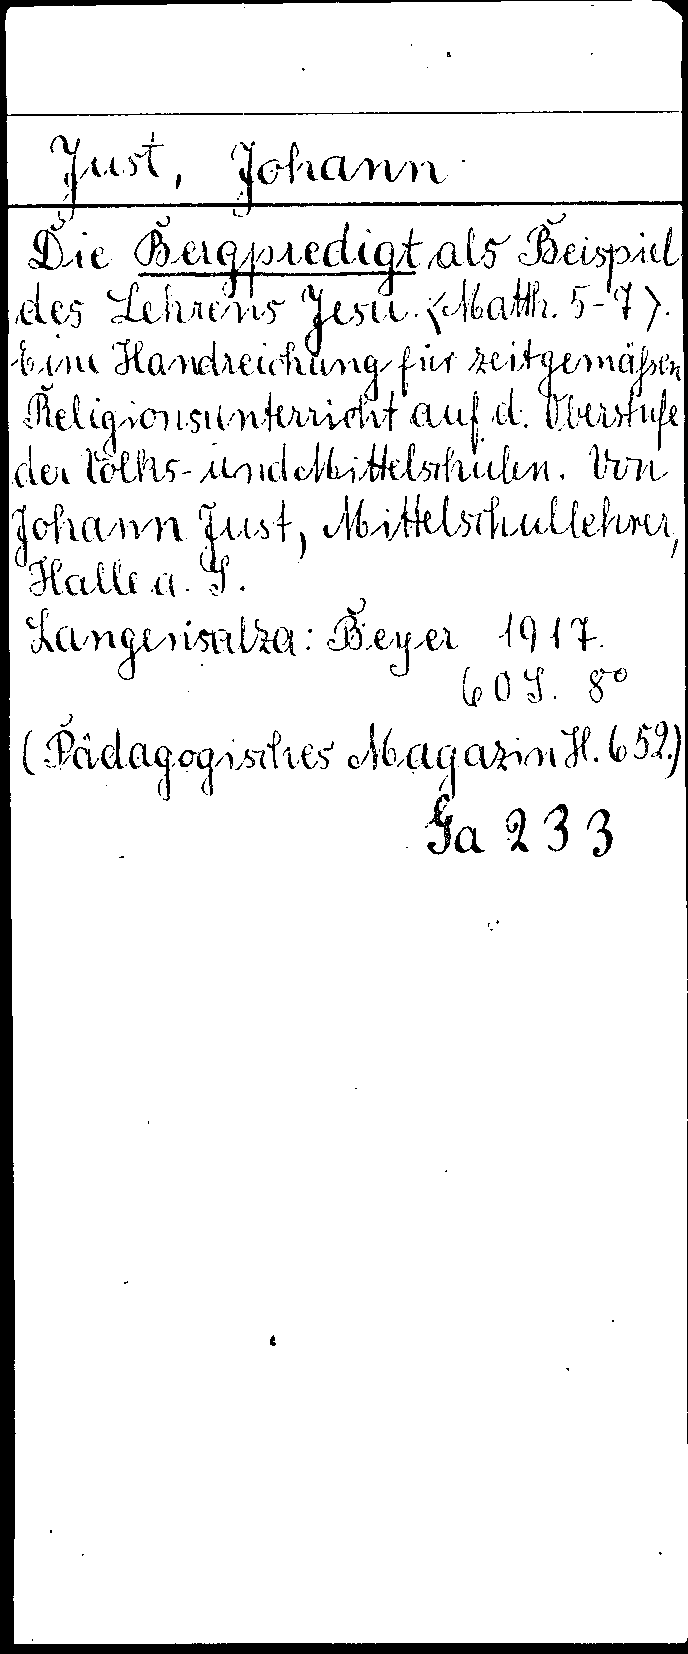 Just, Johann
Die Bergpredigt als Beispiel
des Lehrens Jesu. <Matth. 5-7>.
Eine Handreichung für zeitgemäßen
Religionsunterricht auf d. Oberstufe
der Volks- und Mittelschulen. Von
Johann Just, Mittelschullehrer,
Halle a. S.
Langensalza: Beyer 1917.
60 S. 8°
(Pädagogisches Magazin H. 652.)
Ga 233